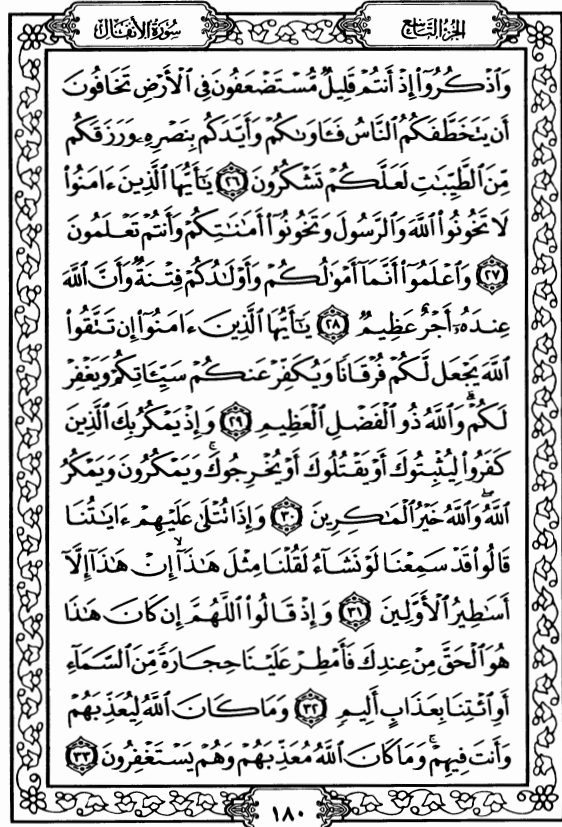 الجزء التاسع سورة الأنفال
وَٱذْكُرُوٓا۟ إِذْ أَنتُمْ قَلِيلٌ مُّسْتَضْعَفُونَ فِى ٱلْأَرْضِ تَخَافُونَ
أَن يَتَخَطَّفَكُمُ ٱلنَّاسُ فَـَٔاوَىٰكُمْ وَأَيَّدَكُم بِنَصْرِهِۦ وَرَزَقَكُم
مِّنَ ٱلطَّيِّبَـٰتِ لَعَلَّكُمْ تَشْكُرُونَ ٢٦ يَـٰٓأَيُّهَا ٱلَّذِينَ ءَامَنُوا۟
لَا تَخُونُوا۟ ٱللَّهَ وَٱلرَّسُولَ وَتَخُونُوٓا۟ أَمَـٰنَـٰتِكُمْ وَأَنتُمْ تَعْلَمُونَ
٢٧ وَٱعْلَمُوٓا۟ أَنَّمَآ أَمْوَٰلُكُمْ وَأَوْلَـٰدُكُمْ فِتْنَةٌ وَأَنَّ ٱللَّهَ
عِندَهُۥٓ أَجْرٌ عَظِيمٌ ٢٨ يَـٰٓأَيُّهَا ٱلَّذِينَ ءَامَنُوٓا۟ إِن تَتَّقُوا۟
ٱللَّهَ يَجْعَل لَّكُمْ فُرْقَانًا وَيُكَفِّرْ عَنكُمْ سَيِّـَٔاتِكُمْ وَيَغْفِرْ
لَكُمْ ۗ وَٱللَّهُ ذُو ٱلْفَضْلِ ٱلْعَظِيمِ ٢٩ وَإِذْ يَمْكُرُ بِكَ ٱلَّذِينَ
كَفَرُوا۟ لِيُثْبِتُوكَ أَوْ يَقْتُلُوكَ أَوْ يُخْرِجُوكَ ۚ وَيَمْكُرُونَ وَيَمْكُرُ
ٱللَّهُ ۖ وَٱللَّهُ خَيْرُ ٱلْمَـٰكِرِينَ ٣٠ وَإِذَا تُتْلَىٰ عَلَيْهِمْ ءَايَـٰتُنَا
قَالُوا۟ قَدْ سَمِعْنَا لَوْ نَشَآءُ لَقُلْنَا مِثْلَ هَـٰذَآ ۙ إِنْ هَـٰذَآ إِلَّآ
أَسَـٰطِيرُ ٱلْأَوَّلِينَ ٣١ وَإِذْ قَالُوا۟ ٱللَّهُمَّ إِن كَانَ هَـٰذَا
هُوَ ٱلْحَقَّ مِنْ عِندِكَ فَأَمْطِرْ عَلَيْنَا حِجَارَةً مِّنَ ٱلسَّمَآءِ
أَوِ ٱئْتِنَا بِعَذَابٍ أَلِيمٍ ٣٢ وَمَا كَانَ ٱللَّهُ لِيُعَذِّبَهُمْ
وَأَنتَ فِيهِمْ ۚ وَمَا كَانَ ٱللَّهُ مُعَذِّبَهُمْ وَهُمْ يَسْتَغْفِرُونَ ٣٣
١٨٠